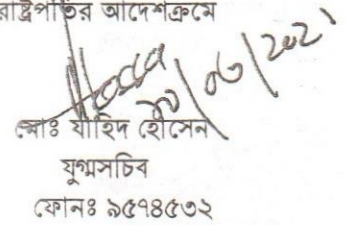 রাষ্ট্রপতির আদেশক্রমে
মোঃ যাহিদ হোসেন
যুগ্মসচিব
ফোনঃ ৯৫৭৪৫৩২